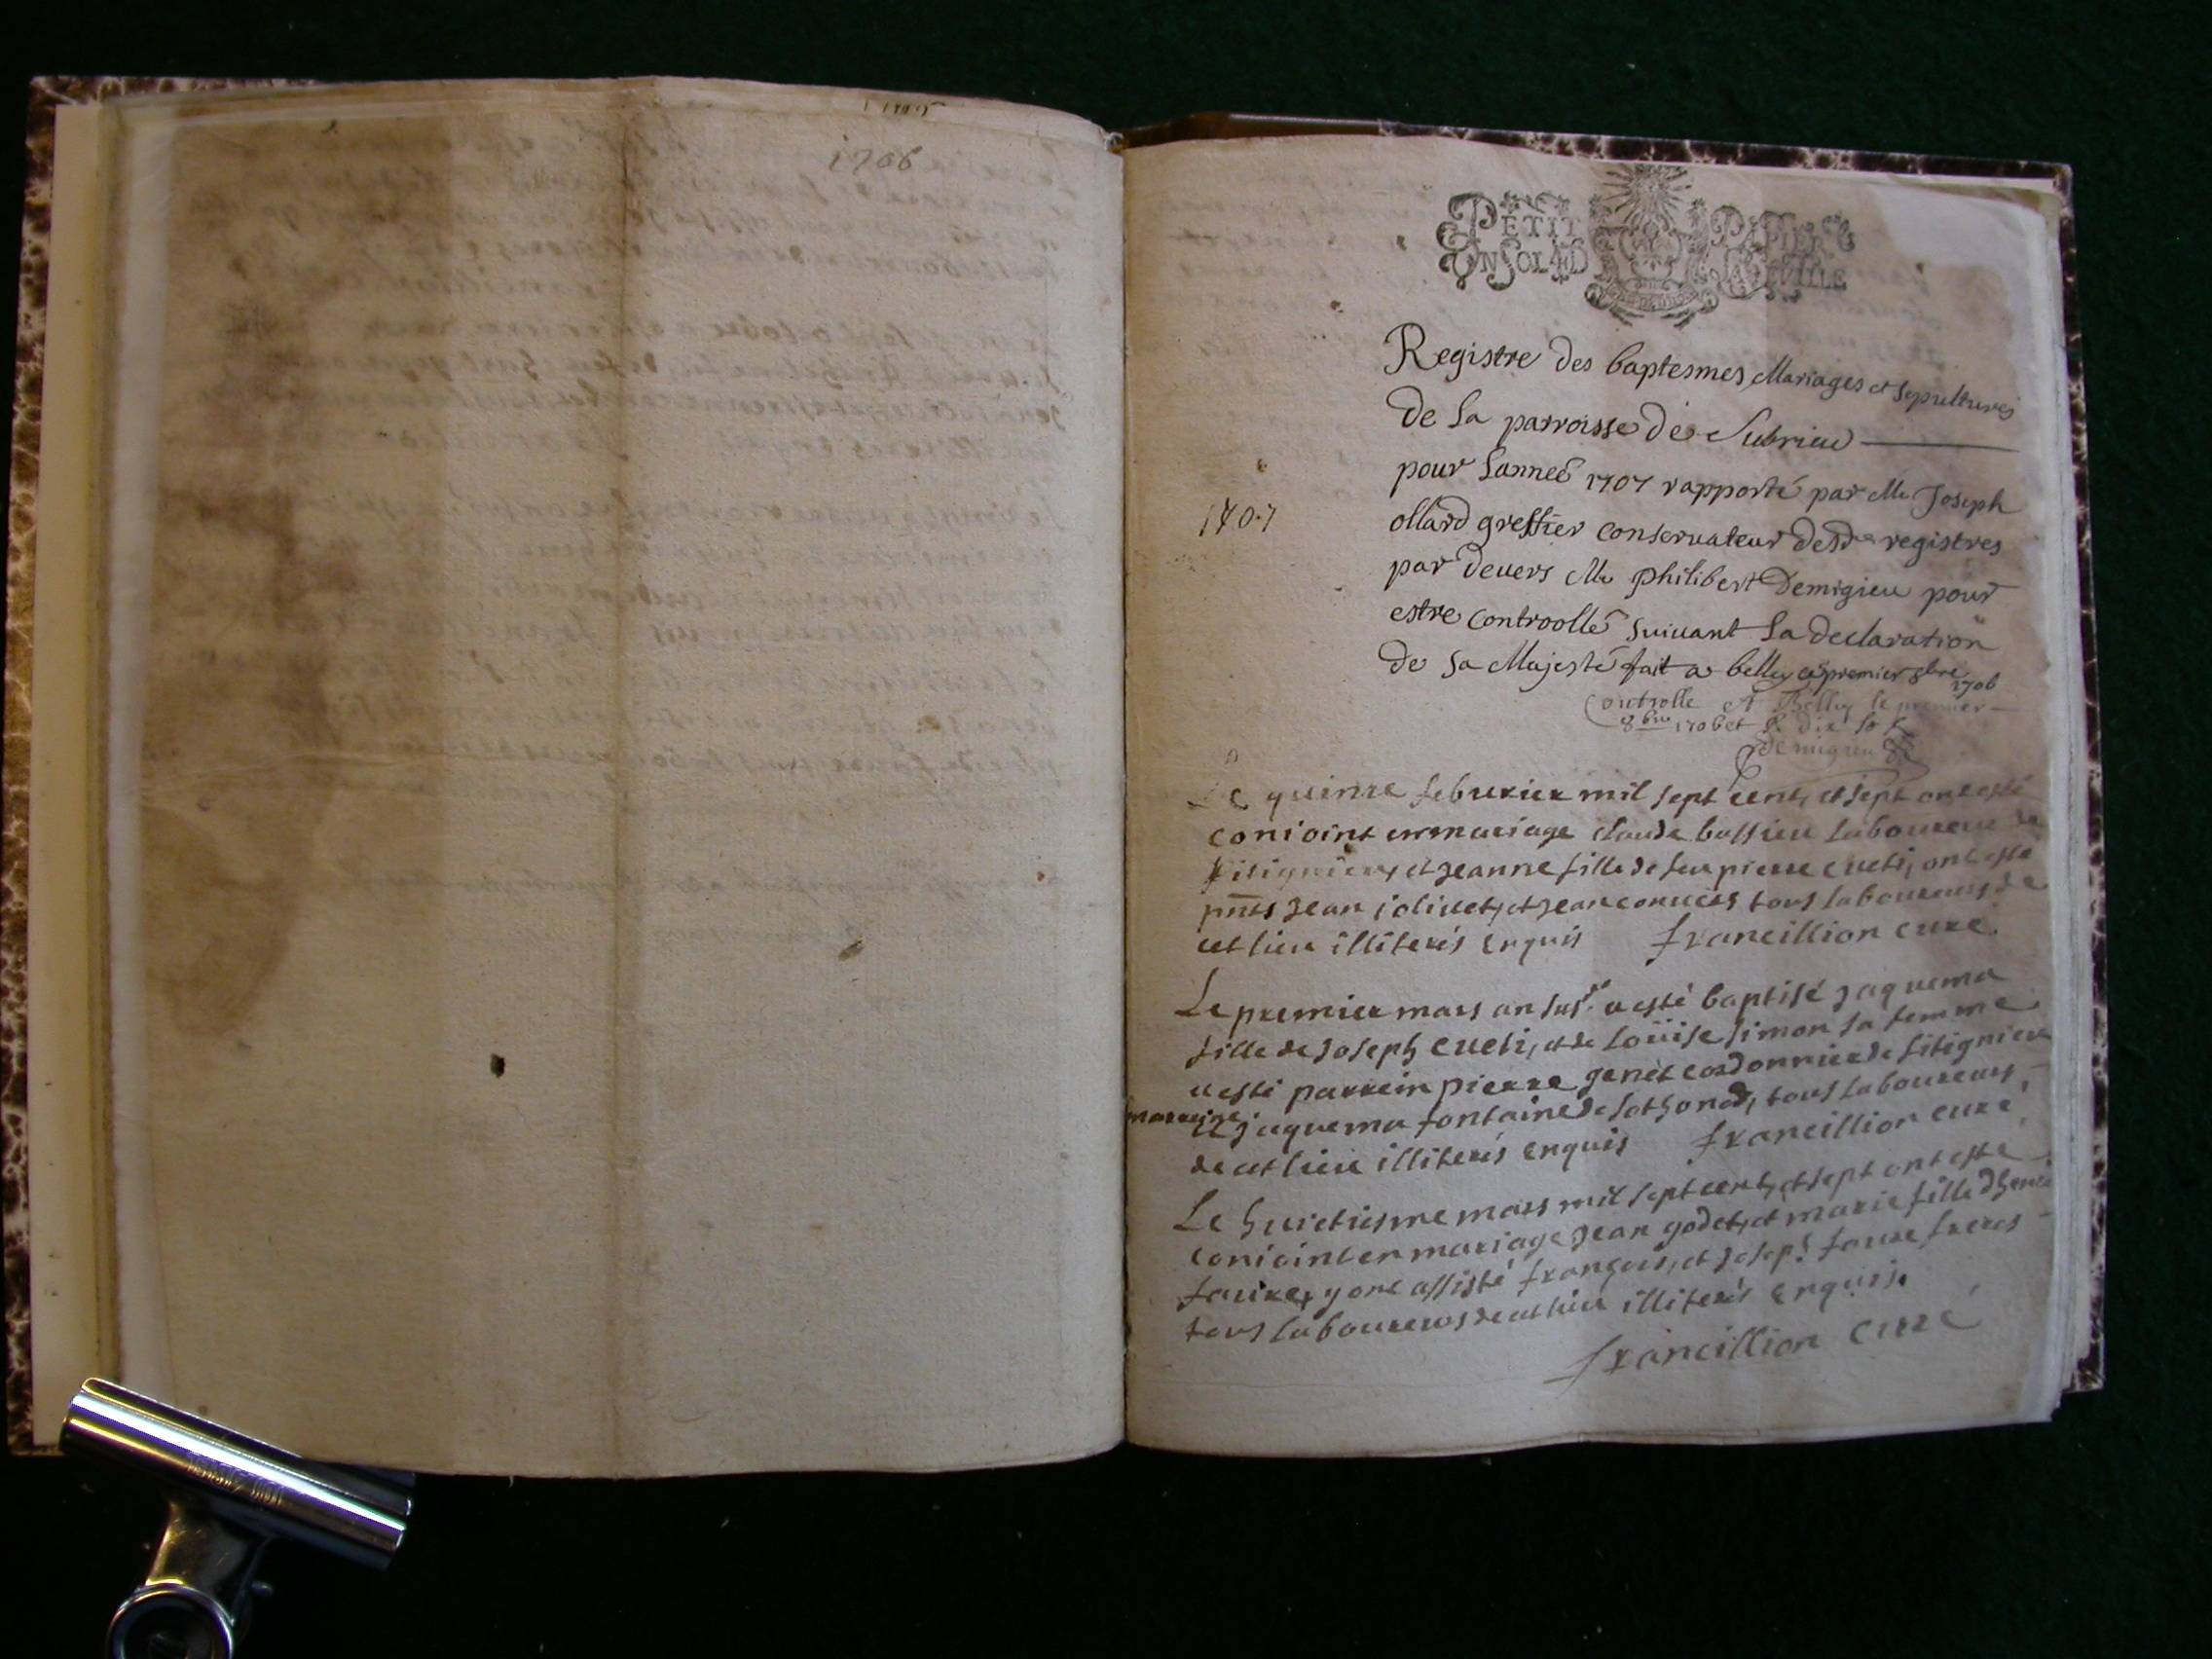 1706
PETIT PAPIER
UN SOL 4D LA FEUILLE
Registre des baptesmes Mariages et sepultures
De la parroisse de Subrieu
pour lanneé 1707 rapporté par Me Joseph
1707
ollard greffier conservateur desd. registres
par devers Me philibert Demigieu pour
estre controollé suivant la declaration
de sa Majesté fait a belley ce premier 8bre 1706
Controlle A Belley le premier
8bre 1706 et R. dix sols
Demigieu
Le quinze feburier mil sept cent, et sept ont esté
conioint en mariage claude bassieu laboureur de
fitignieu, et jeanne fille de feu pierre cueti, ont esté
pnts jean joliuet, et jean tous laboureurs de
cet lieu illiterés enquis francillion curé
Le premier mars an susd. a esté baptisé jaquema
fille de joseph cueti, et de loüise simon sa femme
a esté parrein pierre genet cordonnier de fitignieu
marreine jaquema fontaine de sothonod, tous laboureurs
de cet lieu illiterés enquis francillion curé
Le huictiesme mars mil sept cent, et sept ont esté
conioint en mariage jean godet, et marie fille dhenri
faure, y ont assisté françois, et joseph faure freres
tous laboureurs de cet lieu illiterés enquis.
francillion curé